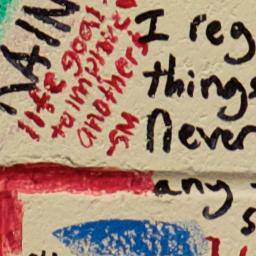 life goal:
to implove
another's
SM
I reg
things
Never
any
s